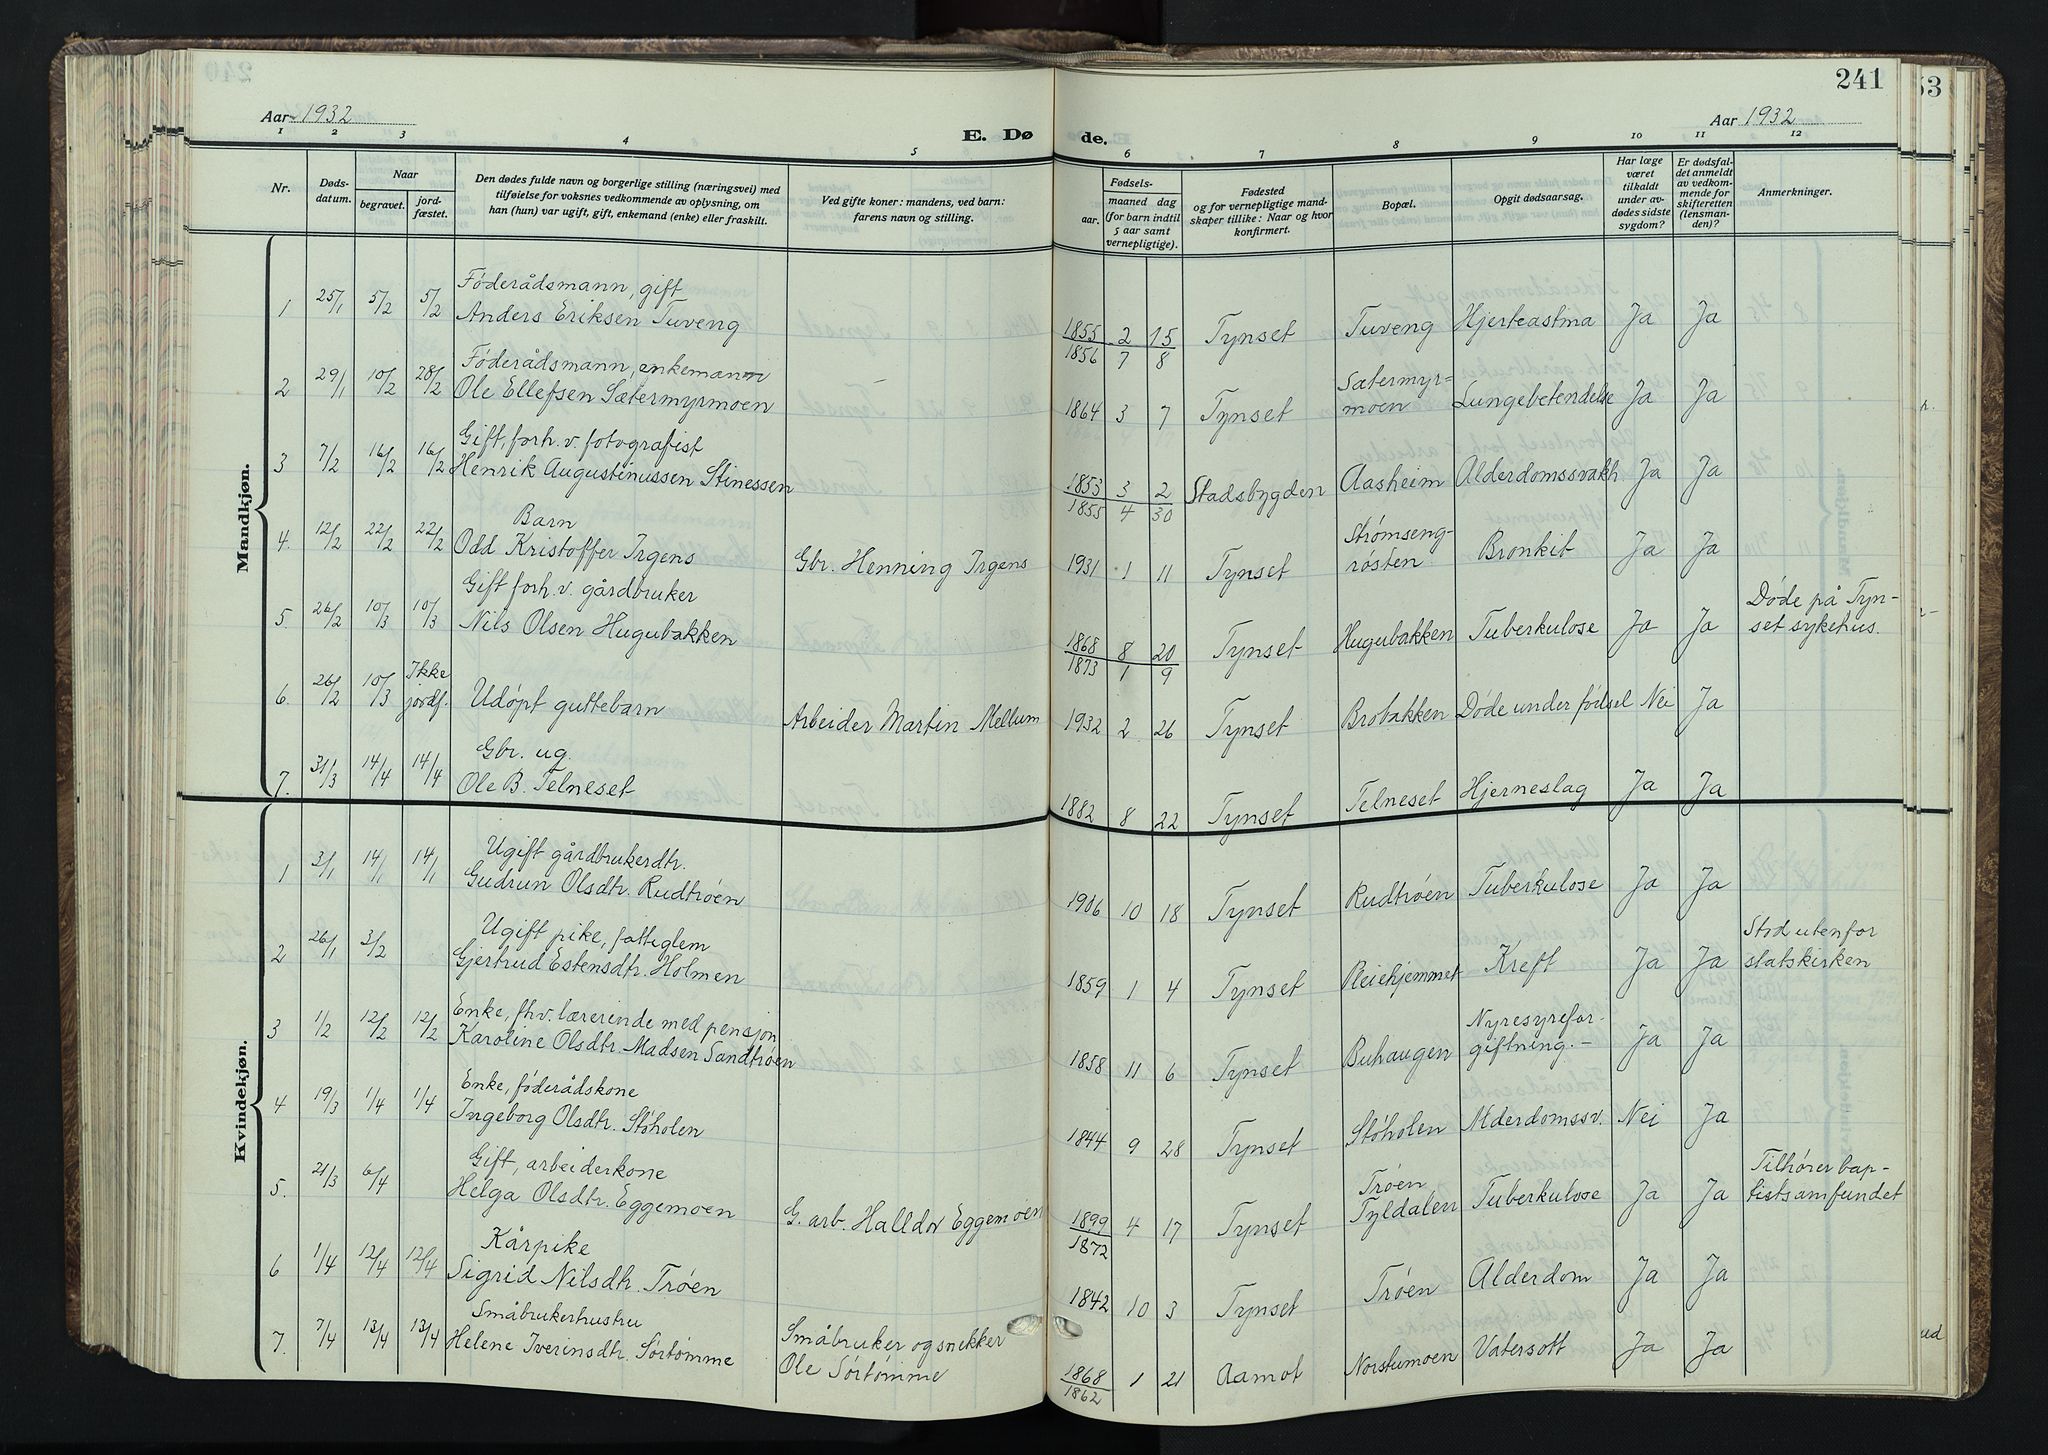 240
241
53
Aar 1932
E. Dø
de.
Aar 1932
1 2 3 4 5 6 7 8 9 10 11 12
Nr.
Døds-
datum.
Naar
begravet.
jord-
fæstet.
Den dødes fulde navn og borgerlige stilling (næringsvei) med
tilføielse for voksnes vedkommende av oplysning, om
han (hun) var ugift, gift, enkemand (enke) eller fraskilt.
Ved gifte koner: mandens, ved barn:
farens navn og stilling.
Fødsels-
aar.
maaned dag
(for barn indtil
5 aar samt
vernepligtige).
Fødested
og for vernepligtige mand-
skaper tillike: Naar og hvor
konfirmert.
Bopæl.
Opgit dødsaarsag.
Har læge
været
tilkaldt
under av-
dødes sidste
sygdom?
Er dødsfal-
det anmeldt
av vedkom-
mende for
skifteretten
(lensman-
den)?
Anmerkninger.
Mandkjøn.
1 25/1 5/2 5/2 Föderådsmann, gift
Anders Eriksen Tuveng
1855 2 15
1856 7 8
Tynset Tuveng Hjerteastma Ja Ja
2 29/1 10/2 28/2 Föderådsmann, enkemann
Ole Ellefsen Sætermyrmoen
1864 3 7 Tynset Sætermyr=
moen Lungebetendelse Ja Ja
3 7/2 16/2 16/2 Gift, forh. v. fotografist
Henrik Augustinussen Stinessen
1853 3 2
1855 4 30
Stadsbygden Aasheim Alderdomssvakh Ja Ja
4. 12/2 22/2 22/2 Barn
Odd Kristoffer Irgens Gbr. Henning Irgens
1931 1 11 Tynset Strømseng-
røsten Bronkit Ja Ja
5. 26/2 10/3 10/3 Gift forh. v. gårdbruker
Nils Olsen Hugubakken
1868 8 20
1873 1 9
Tynset Hugubakken Tuberkulose Ja Ja Døde på Tyn-
set sykehus.
6. 26/2 10/3 Ikke
jordf. Udøpt guttebarn Arbeider Martin Mellum
1932 2 26 Tynset Brobakken Døde under fødsel Nei Ja
7. 31/3 14/4 14/4 Gbr. ug.
Ole B. Telneset
1882 8 22 Tynset Telneset Hjerneslag Ja Ja
Kvindekjøn.
1 3/1 14/1 14/1 Ugift gårdbrukerdtr.
Gudrun Olsdtr. Rudtrøen
1906 10 18 Tynset Rudtrøen Tuberkulose Ja Ja
2 26/1 3/2 Ugift pike, fattiglem
Gjertrud Estensdtr. Holmen
1859 1 4 Tynset Pleiehjemmet Kreft Ja Ja Stod utenfor
statskirken
3 1/2 12/2 12/2 Enke, fhv. lærerinde med pensjon
Karoline Olsdtr. Madsen Sandtrøen
1858 11 6 Tynset Buhaugen Nyresyrefor-
giftning.- Ja Ja
4 19/3 1/4 1/4 Enke, föderådskone
Ingeborg Olsdtr. Støholen
1844 9 28 Tynset Støholen Alderdomssv. Nei Ja
5. 21/3 6/4 Gift, arbeiderkone
Helga Olsdtr. Eggemoen G. arb. Halldor Eggemoen
1899 4 17
1872
Tynset Trøen
Tyldalen Tuberkulose Ja Ja Tilhører bap-
tistsamfundet
6 1/4 12/4 12/4 Kårpike
Sigrid Nilsdtr. Trøen
1842 10 3 Tynset Trøen Alderdom Ja Ja
7. 7/4 13/4 13/4 Småbrukerhustru
Helene Iverinsdtr. Sørtømme Småbruker og snekker
Ole Sørtømme
1868 1 21
1862
Aamot Norstumoen Vatersott Ja Ja